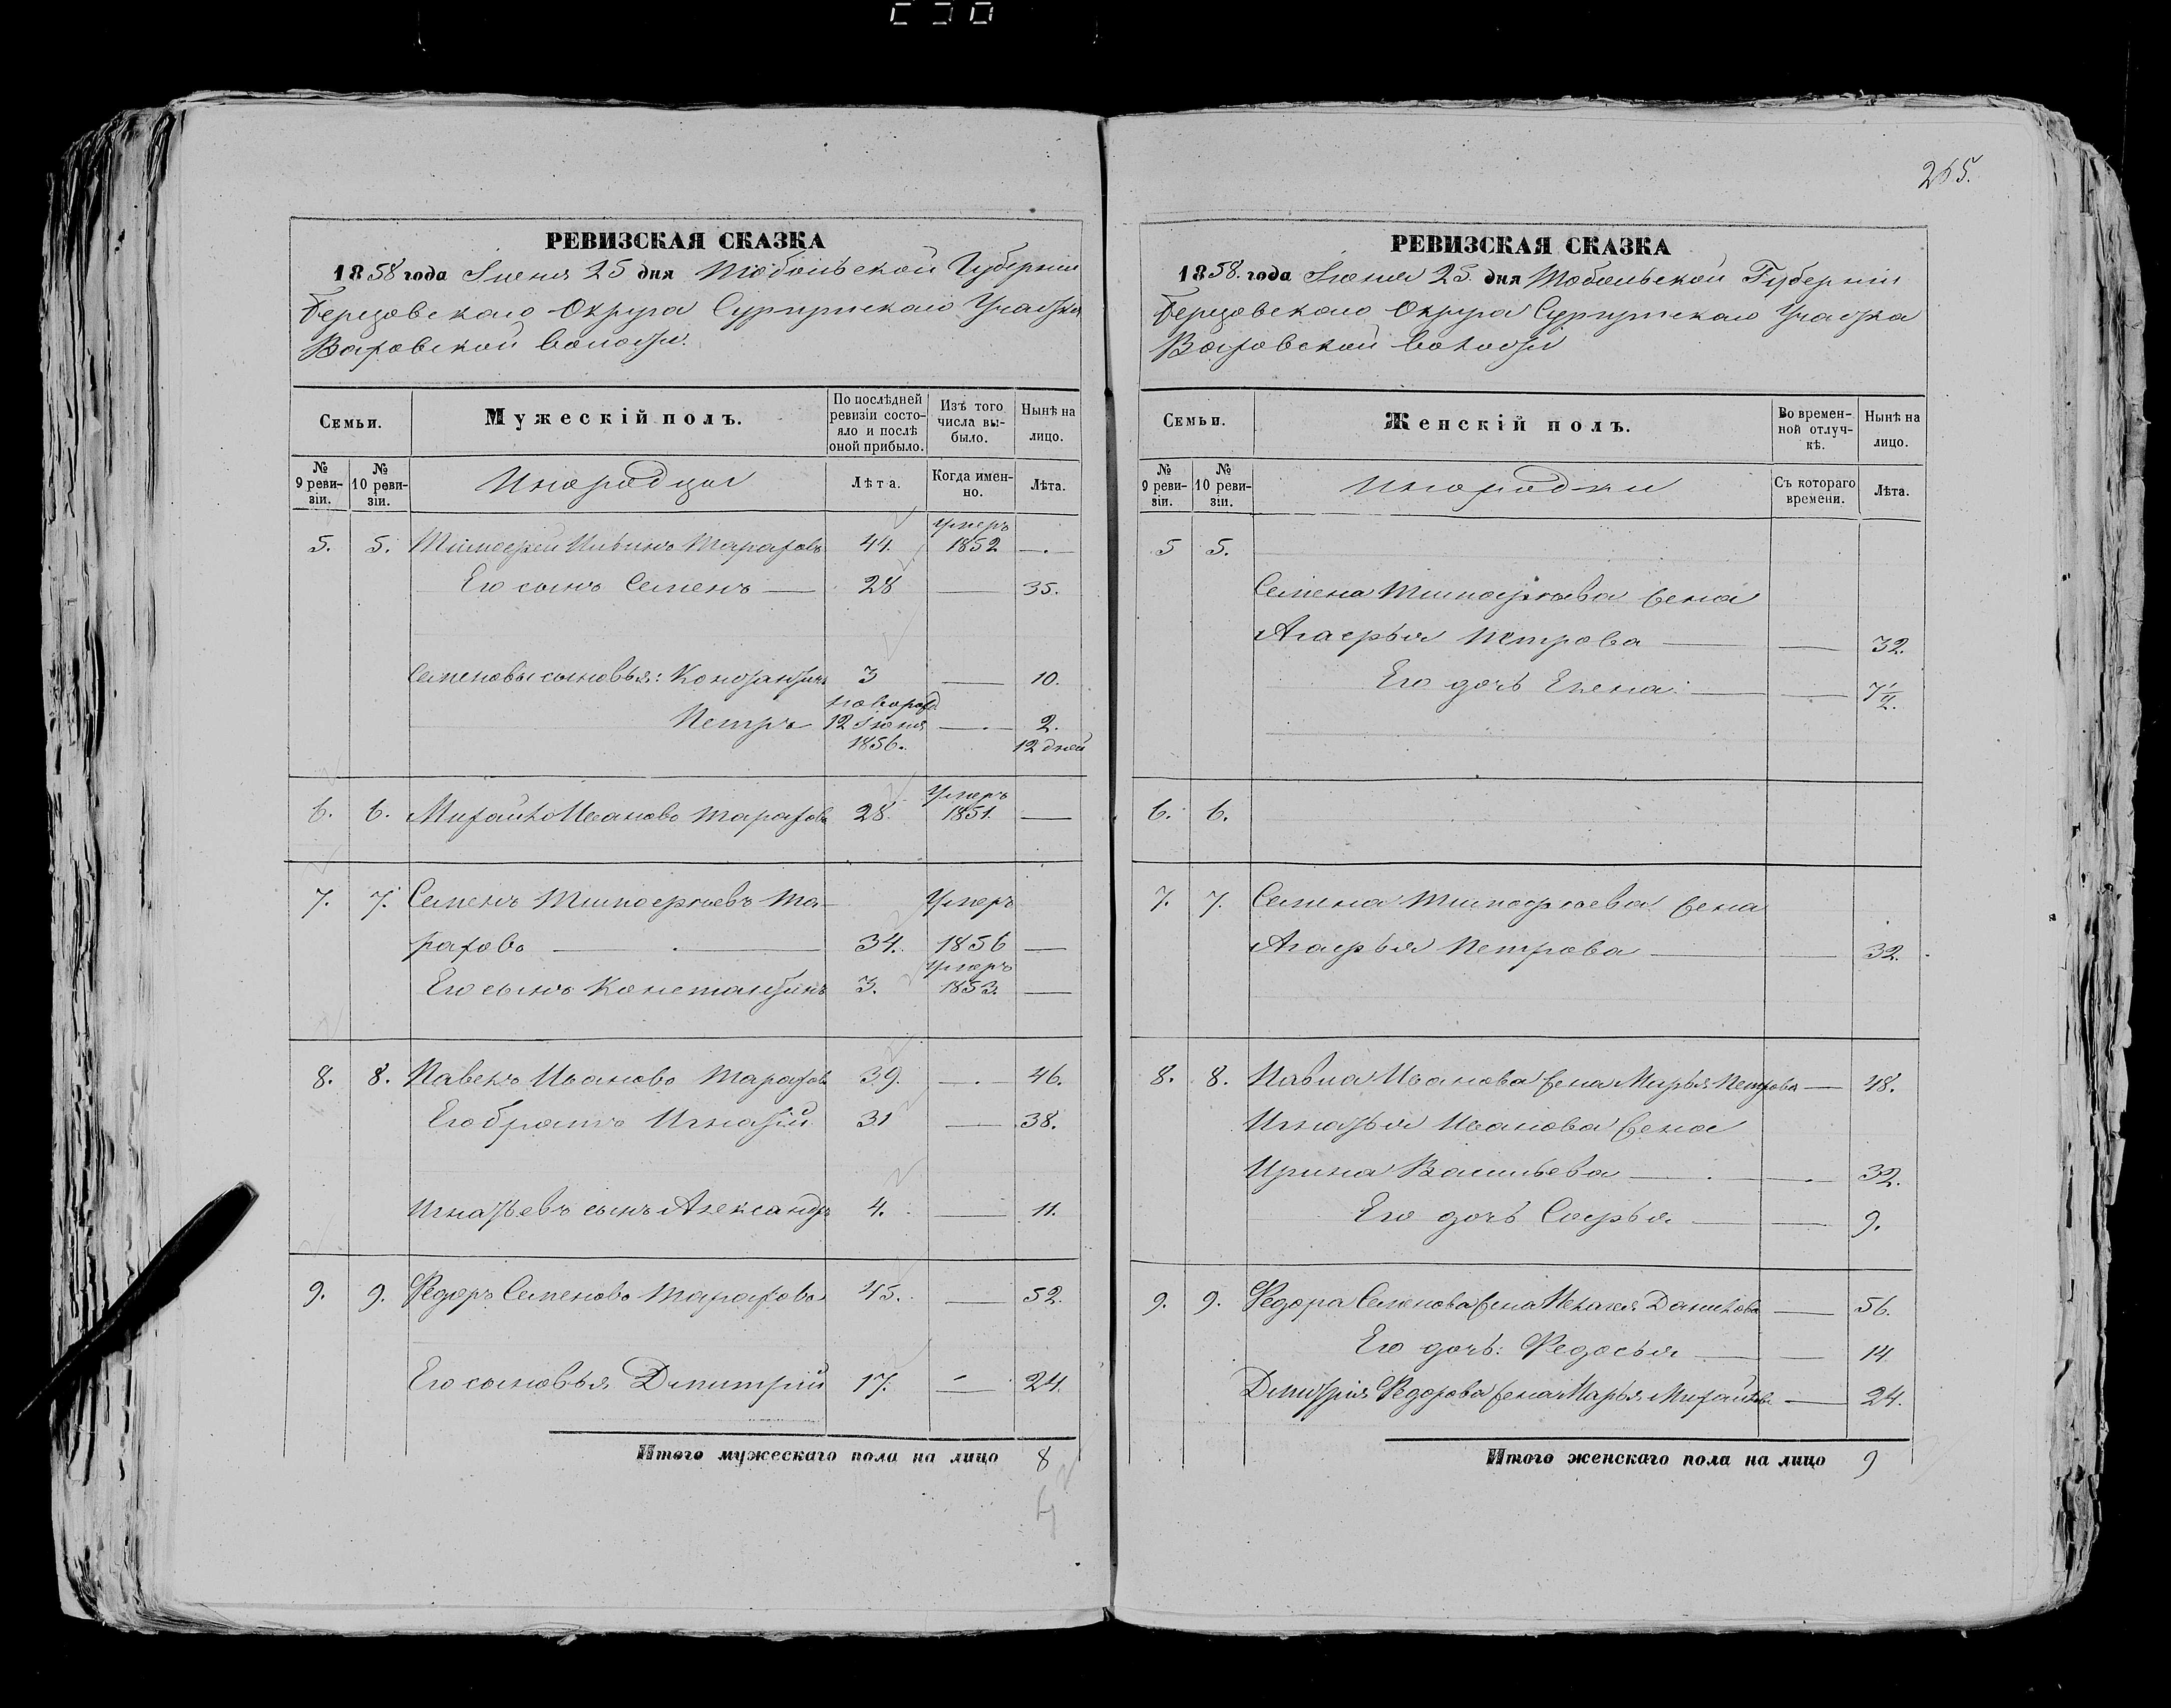 265.
РЕВИЗСКАЯ СКАЗКА
1858 года Іюня 25 дня Тобольской Губерніи
Березовскаго Округа Сургутскаго Участка
Ваховской волости.
Семьи.
Мужескій полъ.
По послѣдней ревизіи состояло и послѣ оной прибыло.
Изъ того числа выбыло.
Нынѣ на лицо.
№ 9 ревизіи.
№ 10 ревизіи.
Инородцы
Лѣта.
Когда именно.
Лѣта.
5. 5. Тимофей Ильинъ Тараховъ 44. умеръ 1852 —
Его сынъ Семенъ — 28 — 35.
Семеновы сыновья: Константинъ 3 — 10.
Петръ новорожд. 12 Іюня 1856. — 2. 12 дней
6. 6. Михайло Ивановъ Тараховъ 28. Умеръ 1851. —
7. 7. Семенъ Тимофѣевъ Та-
раховъ — 34. Умеръ 1856 —
Его сынъ Константинъ 3. Умеръ 1853. —
8. 8. Павелъ Ивановъ Тараховъ 39. — 46.
Его братъ Игнатій 31 — 38.
Игнатьевъ сынъ Александръ 4. — 11.
9. 9. Федоръ Семеновъ Тараховъ 45. — 52.
Его сыновья Дмитрій 17. — 24.
Итого мужескаго пола на лицо 8
РЕВИЗСКАЯ СКАЗКА
1858. года Іюня 25. дня Тобольской Губерніи
Березовскаго Округа Сургутскаго Участка
Ваховской волости
Семьи.
Женскій полъ.
Во временной отлучкѣ.
Нынѣ на лицо.
№ 9 ревизіи.
№ 10 ревизіи.
Инородки
Съ котораго времени.
Лѣта.
5 5.
Семена Тимофѣева жена
Агафья Петрова — — 32.
Его дочь Елена: — — 7 1/2.
6. 6.
7. 7. Семена Тимофѣева жена
Агафья Петрова — — 32.
8. 8. Павла Иванова жена Марья Петрова — 48.
Игнатья Иванова жена
Ирина Васильева — — 32.
Его дочь Софья — — 9.
9. 9. Федора Семенова жена Пелагея Данилова — 56.
Его дочь: Федосья — — 14
Дмитрія Федорова жена Марья Михайлова — 24.
Итого женскаго пола на лицо 9